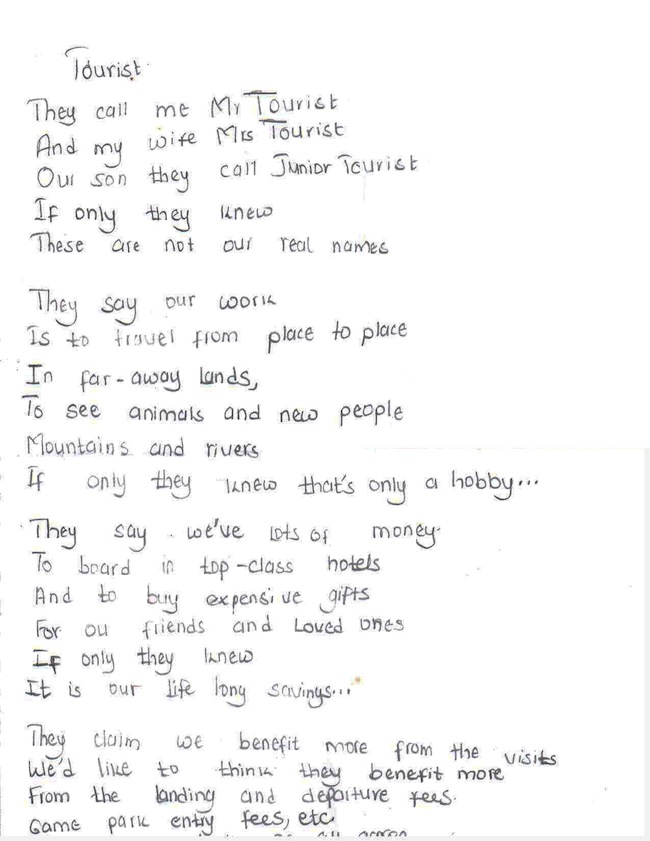 Tourist
They call me Mr Tourist
And my wife Mrs Tourist
Our son they call Junior Tourist
If only they knew
These are not our real names
They say our work
Is to travel from place to place
In far-away lands,
To see animals and new people
Mountains and rivers
If only they knew that's only a hobby...
They say we've lots of money.
To board in top-class hotels
And to buy expensive gifts
For ou friends and Loved ones
If only they knew
It is our life long savings..."
They claim we benefit more from the visits
We'd like to think they benefit more
From the landing and departure fees.
Game park entry fees, etc